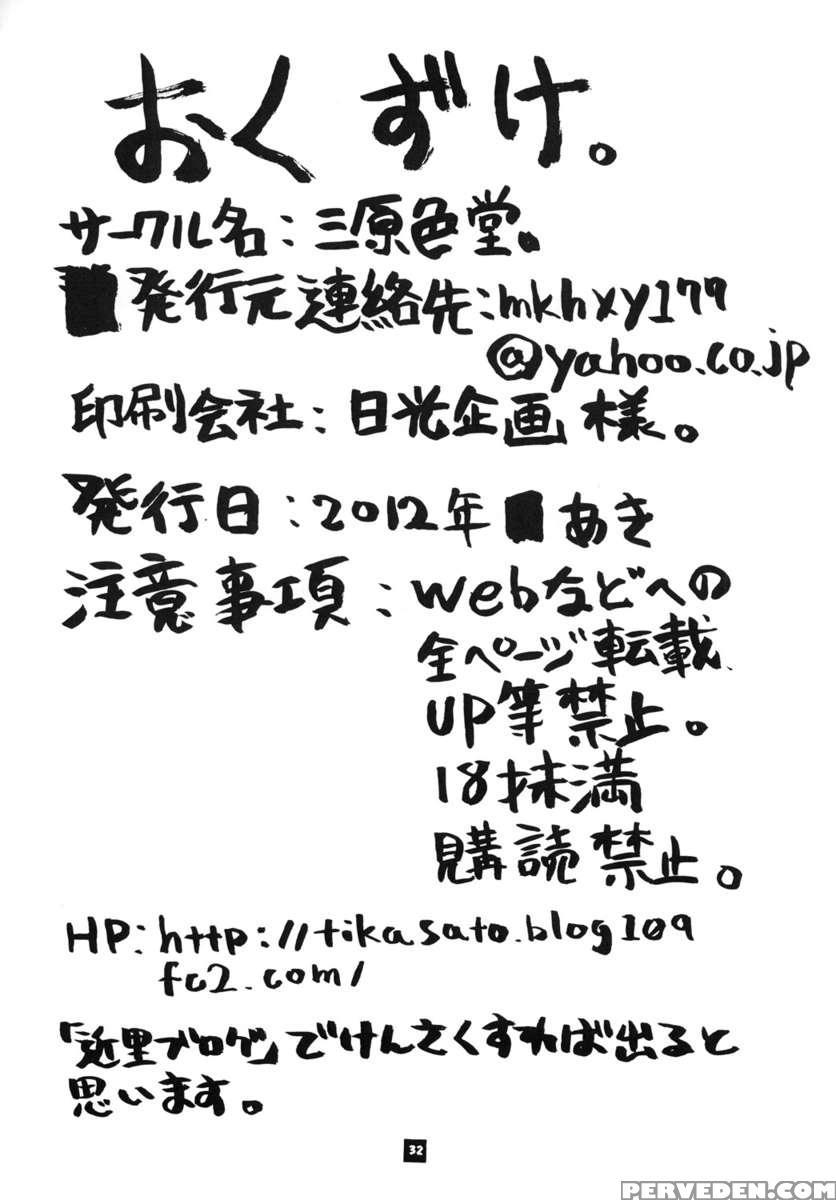 おくずけ。
サークル名：三原色堂。
発行元連絡先：mkhxy177
@yahoo.co.jp
印刷会社：日光企画 様。
発行日：2012年 あき
注意事項：webなどへの
全ページ転載
UP等禁止。
18抹満
購読禁止。
HP：http://tikasato.blog109
fc2.com/
「近里ブログ」でけんさくすれば出ると
思います。
32
PERVEDEN.COM